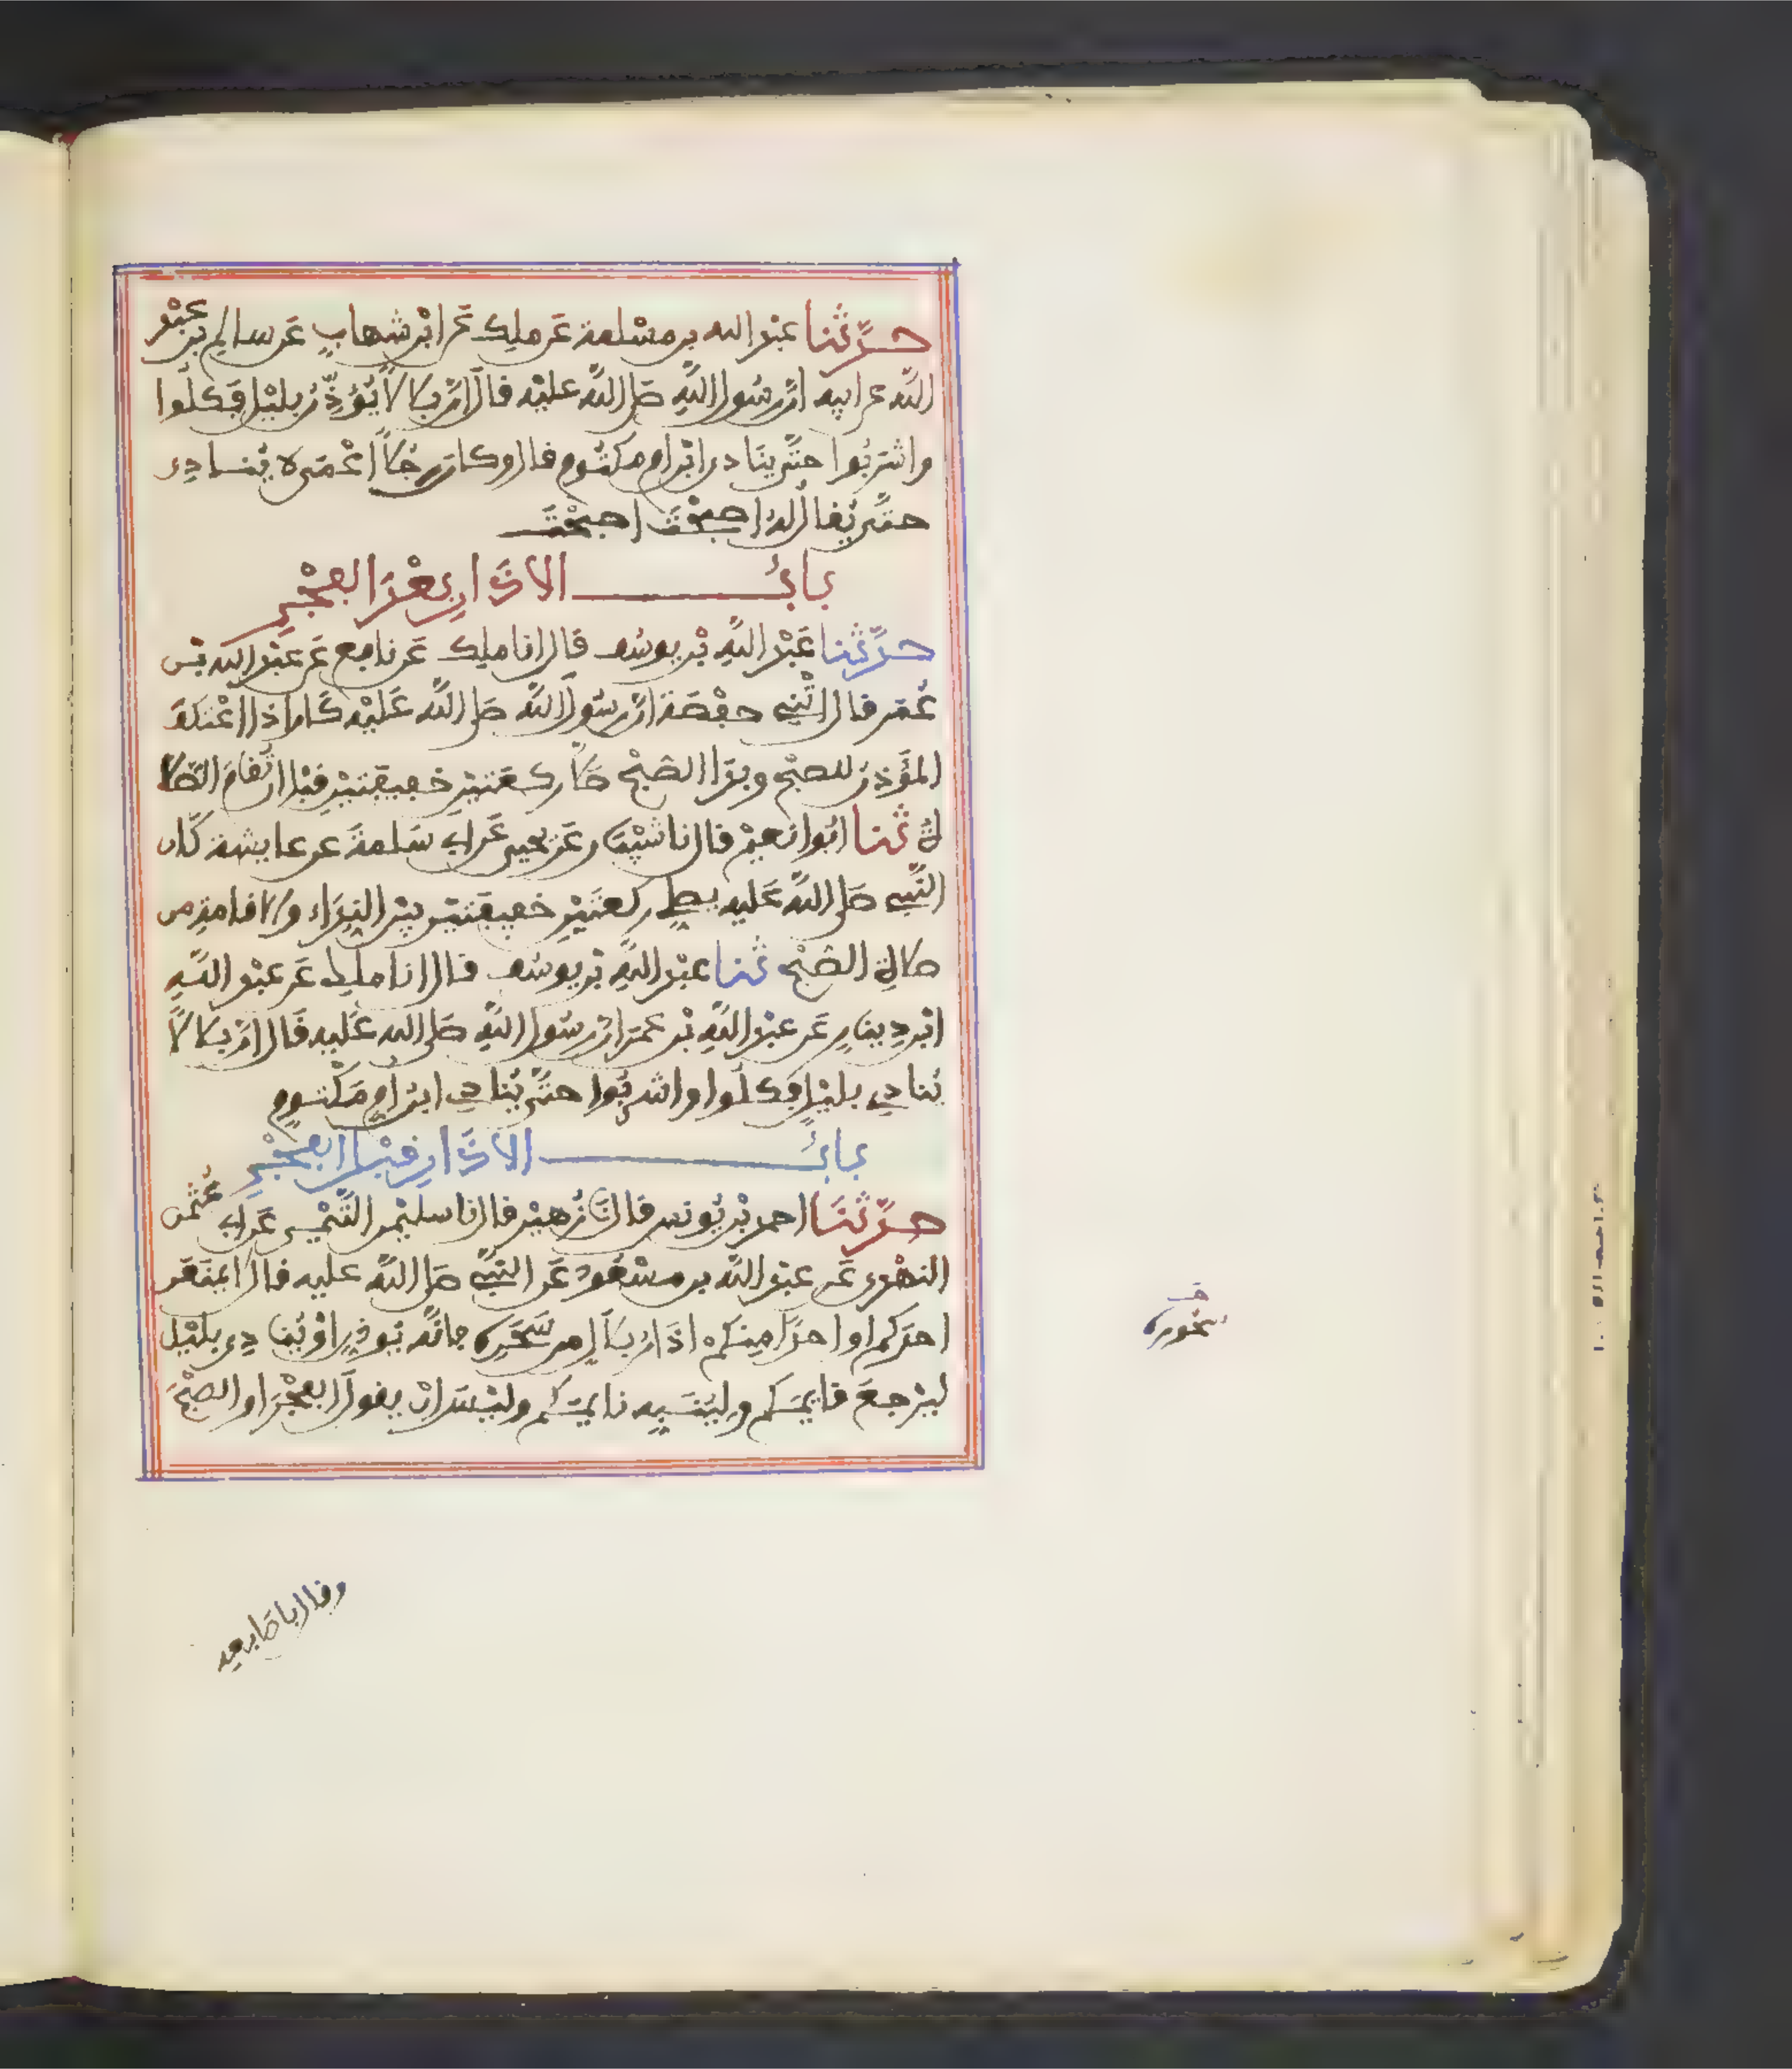 حدثنا عبد الله بن مسلمة عن ملك عن ابن شهاب عن سالم بن عبد
الله عن ابيه ان رسول الله صلى الله عليه قال ان بلالا يؤذن بليل فكلوا
واشربوا حتى ينادي ابن ام مكتوم قال وكان رجلا اعمى لا ينادي
حتى يقال له اصبحت اصبحت
باب الاذان بعد الفجر
حدثنا عبد الله بن يوسف قال انا ملك عن نافع عن عبد الله بن
عمر قال اتتني حفصة ان رسول الله صلى الله عليه كان اذا اعتكف
المؤذن للصبح وبدا الصبح صلى ركعتين خفيفتين قبل ان تقام الصلا
ة ثنا ابوا نعيم قال نا شيبان عن يحيى عن ابي سلمة عن عايشة كان
النبي صلى الله عليه يصلي ركعتين خفيفتين بين النداء والاقامة من
صلاة الصبح ثنا عبد الله بن يوسف قال انا ملك عن عبد الله
ابن دينار عن عبد الله بن عمر ان رسول الله صلى الله عليه قال ان بلالا
ينادي بليل فكلوا واشربوا حتى ينادي ابن ام مكتوم
باب الاذان قبل الفجر
حدثنا احمد بن يونس قال نا زهير قال نا سليمن التيمي عن ابي عثمن
النهدي عن عبد الله بن مسعود عن النبي صلى الله عليه قال لا يمنعن
احدكم او احدا منكم اذان بلال من سحره فانه يوذن او ينادي بليل
ليرجع قايمكم ولينبه نايمكم وليس ان يقول الفجر او الصبح
سحوره
وقال باصابعه